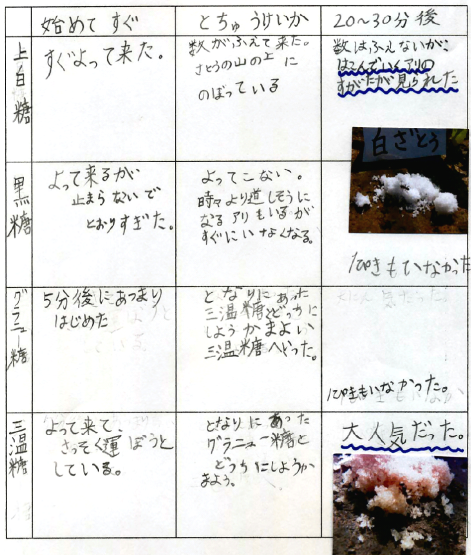 始めて すぐ
とちゅうけいか
20〜30分後
上白糖
すぐよって来た。
数がふえて来た。
さとうの山の上に
のぼっている
数はふえないが、
はこんでいくアリの
すがたが見られた
白ざとう
黒糖
よって来るが
止まらないで
とおりすぎた。
よってこない。
時々より道しそうに
なるアリもいるが
すぐにいなくなる。
1ぴきもいなかった
グラニュー糖
5分後にあつまり
はじめた
となりにあった
三温糖とどっちに
しようかまよい
三温糖へどった。
1ぴきもいなかった。
三温糖
よって来て、
さっそく運ぼうと
している。
となりにあった
グラニュー糖と
どっちにしようか
まよう。
大人気だった。